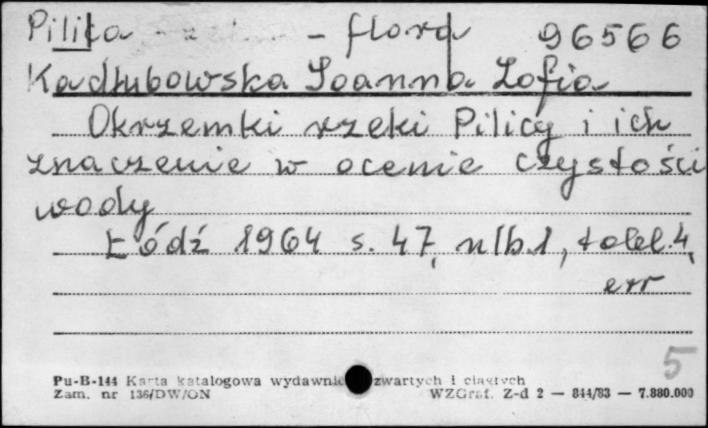 Pilica - flora 96566
Kadłubowska Joanna Zofia
Okrzemki rzeki Pilicy i ich
znaczenie w ocenie czystości
wody
Łódź 1964 s. 47, nlb.1, tabl.4,
err
5
Pu-B-144 Karta katalogowa wydawnic zwartych i ciągłych
Zam. nr 136/DW/ON WZGraf. Z-d 2 — 844/83 — 7.880.000